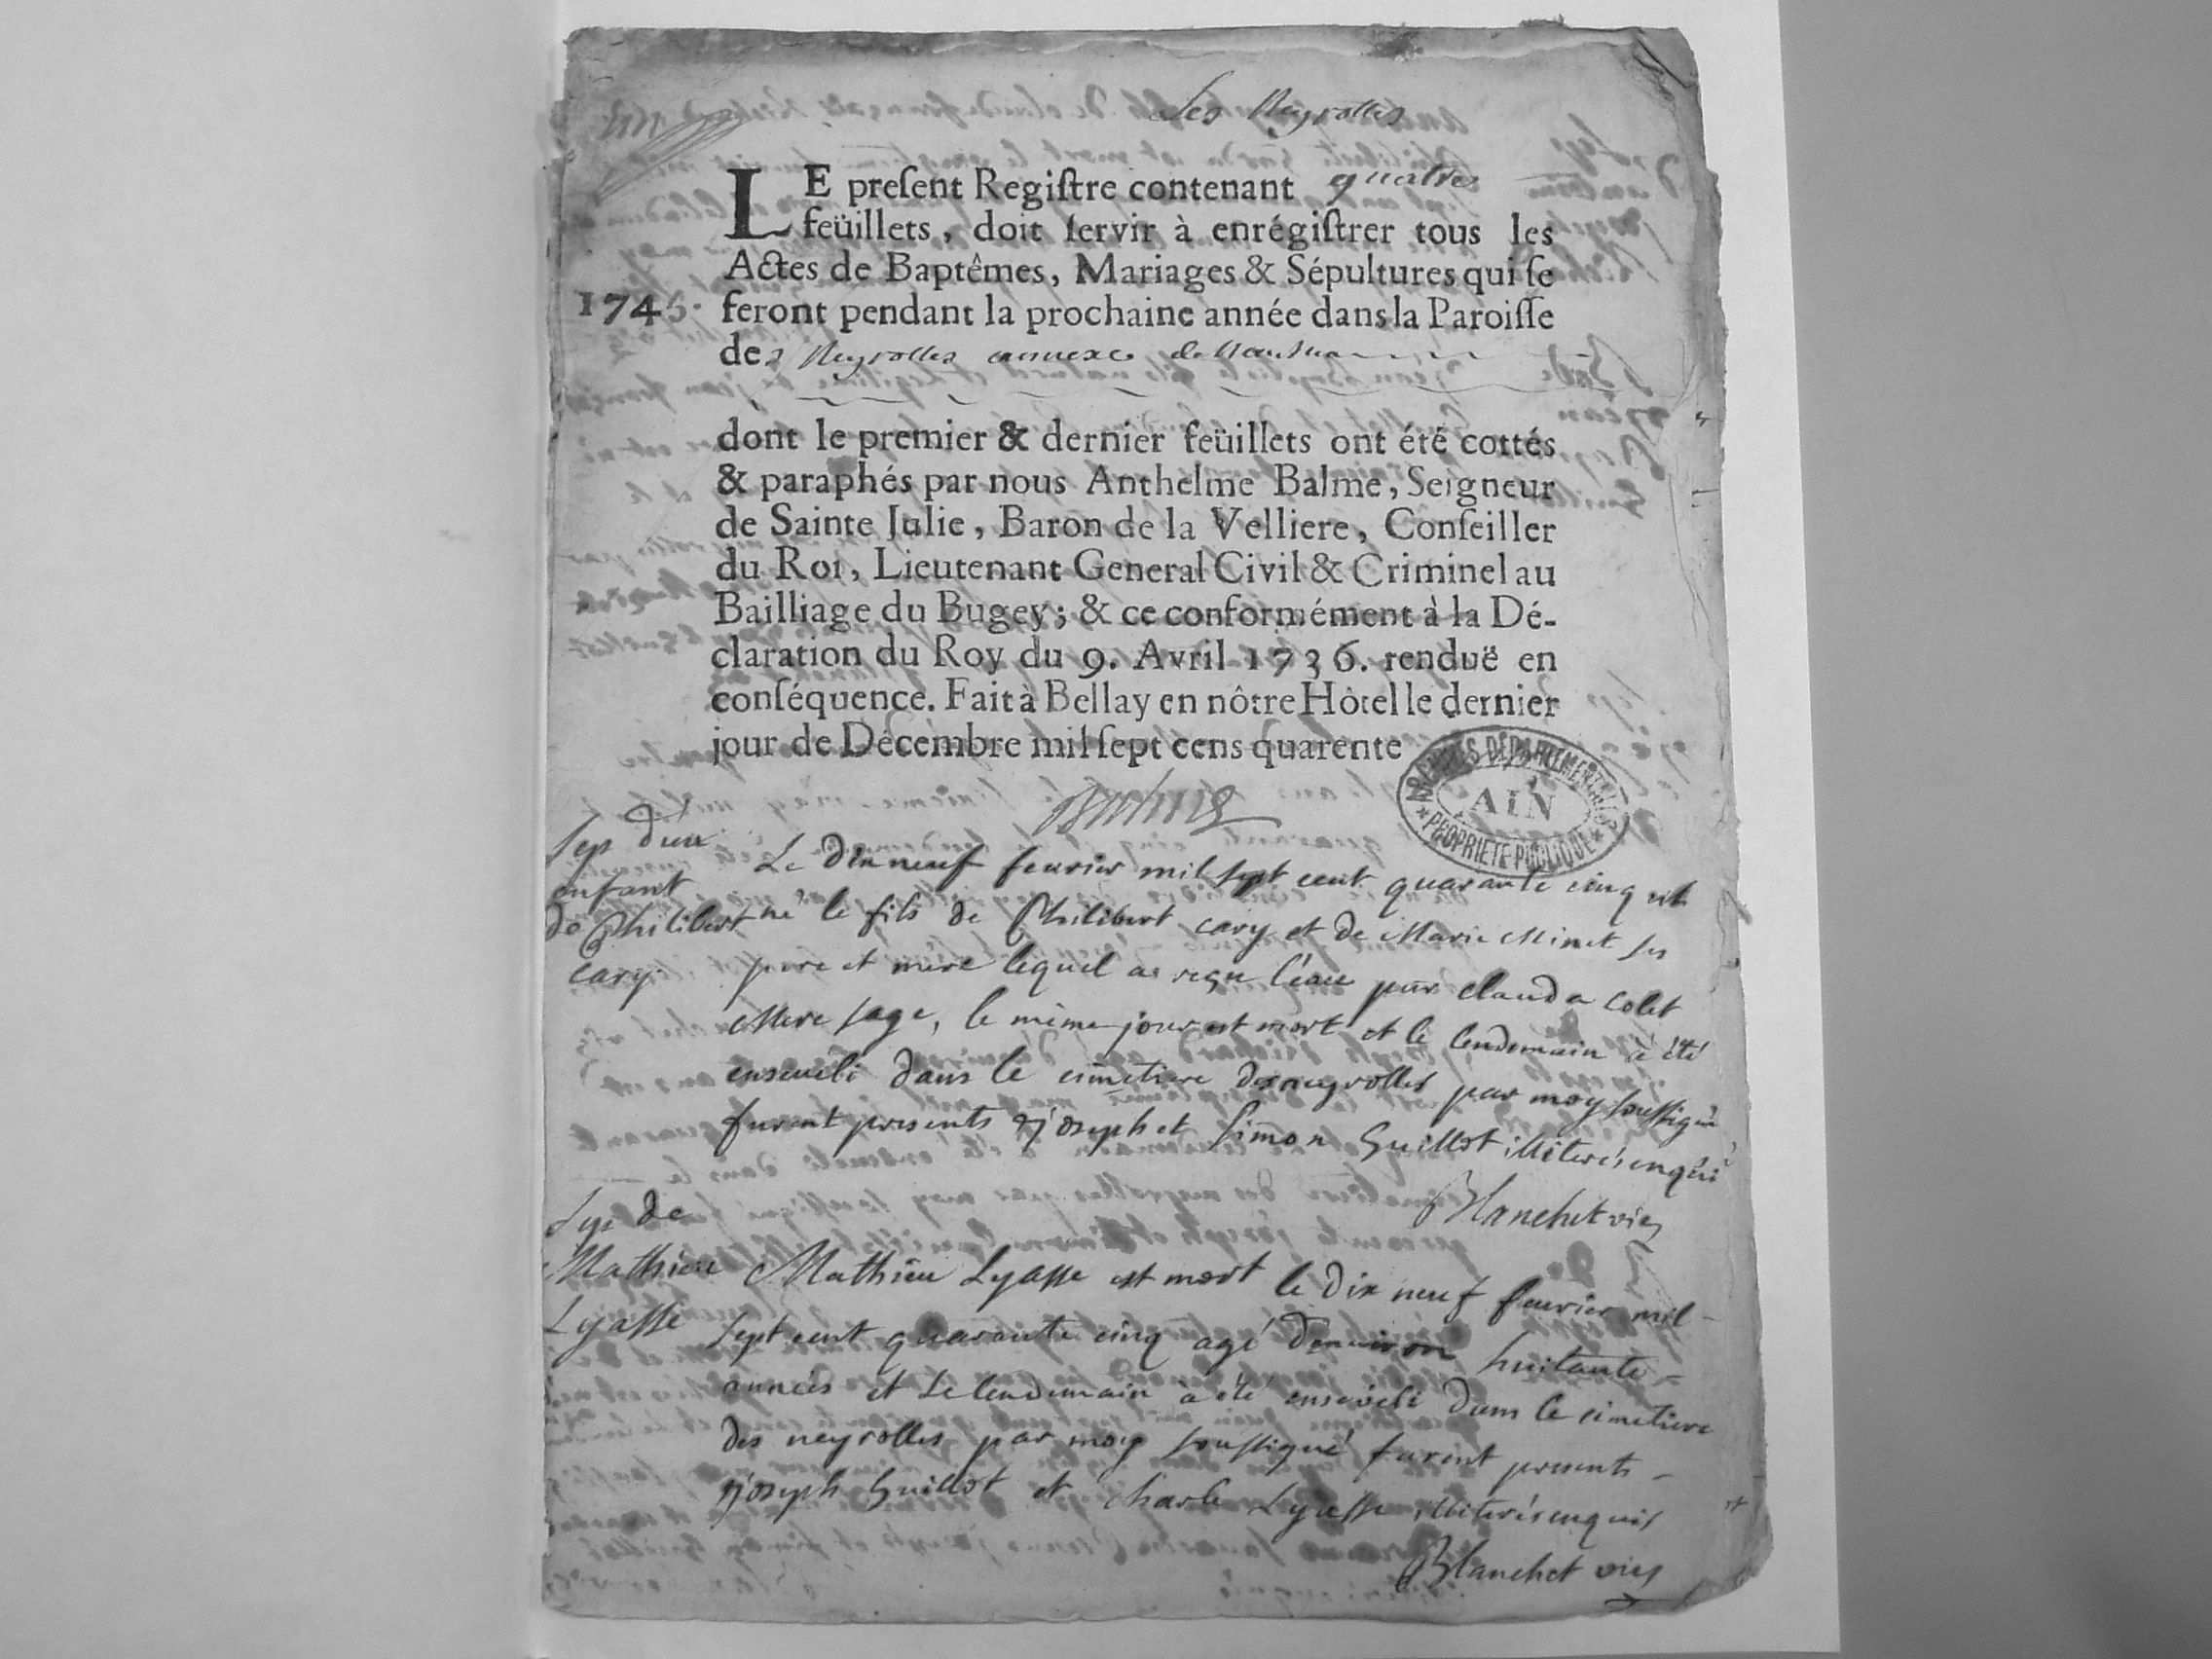 Les Neyrolles
LE preſent Regiſtre contenant quatre
feüillets, doit ſervir à enrégiſtrer tous les
Actes de Baptêmes, Mariages & Sépultures qui ſe
1745. feront pendant la prochaine année dans la Paroiſſe
des Neyrolles annexe de Nantua
dont le premier & dernier feüillets ont été cottés
& paraphés par nous Anthelme Balme, Seigneur
de Sainte Julie, Baron de la Velliere, Conſeiller
du Roi, Lieutenant General Civil & Criminel au
Bailliage du Bugey; & ce conformément à la Dé-
claration du Roy du 9. Avril 1736. renduë en
conſéquence. Fait à Bellay en nôtre Hôtel le dernier
jour de Décembre mil ſept cens quarente
ARCHIVES DÉPARTEMENTALES
AIN
PROPRIÉTÉ PUBLIQUE
Balme
Sep d'un
enfant
de Philibert
cary.
Le dix neuf feurier mil sept cent quarante cinq est
né le fils de Philibert cary et de Marie Minet ses
pere et mere lequel a reçu l'éau par clauda colet
Mere sage, le même jour est mort et le lendemain à été
enseueli dans le cimetiere des neyrolles par moy soussigné
furent presents Joseph et Simon Guillot illiterés enquis
Blanchet vic
Sep de
Mathieu
Lyasse
Mathieu Lyasse est mort le dix neuf feurier mil
sept cent quarante cinq agé d'enuiron huitante
années et Le lendemain à été enseveli dans le cimetiere
des neyrolles par moy soussigné furent presents
Joseph Guillot et charle Lyasse, illiterés enquis
Blanchet vic